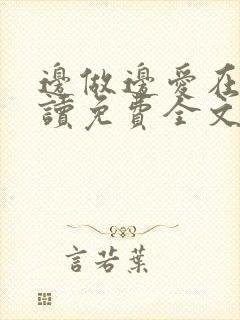 邊做邊愛在
讀免費全文
言若葉